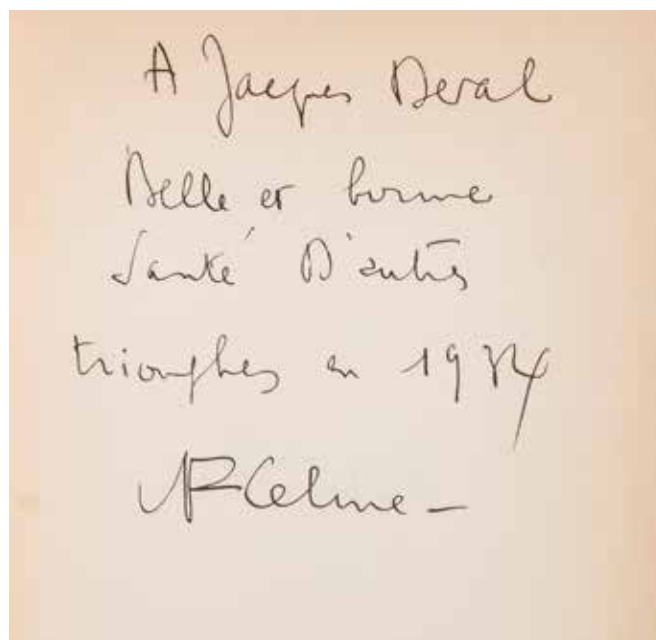 A Jacques Deval
Belle et bonne
Santé D'autres
triomphes en 1934
LF Celine